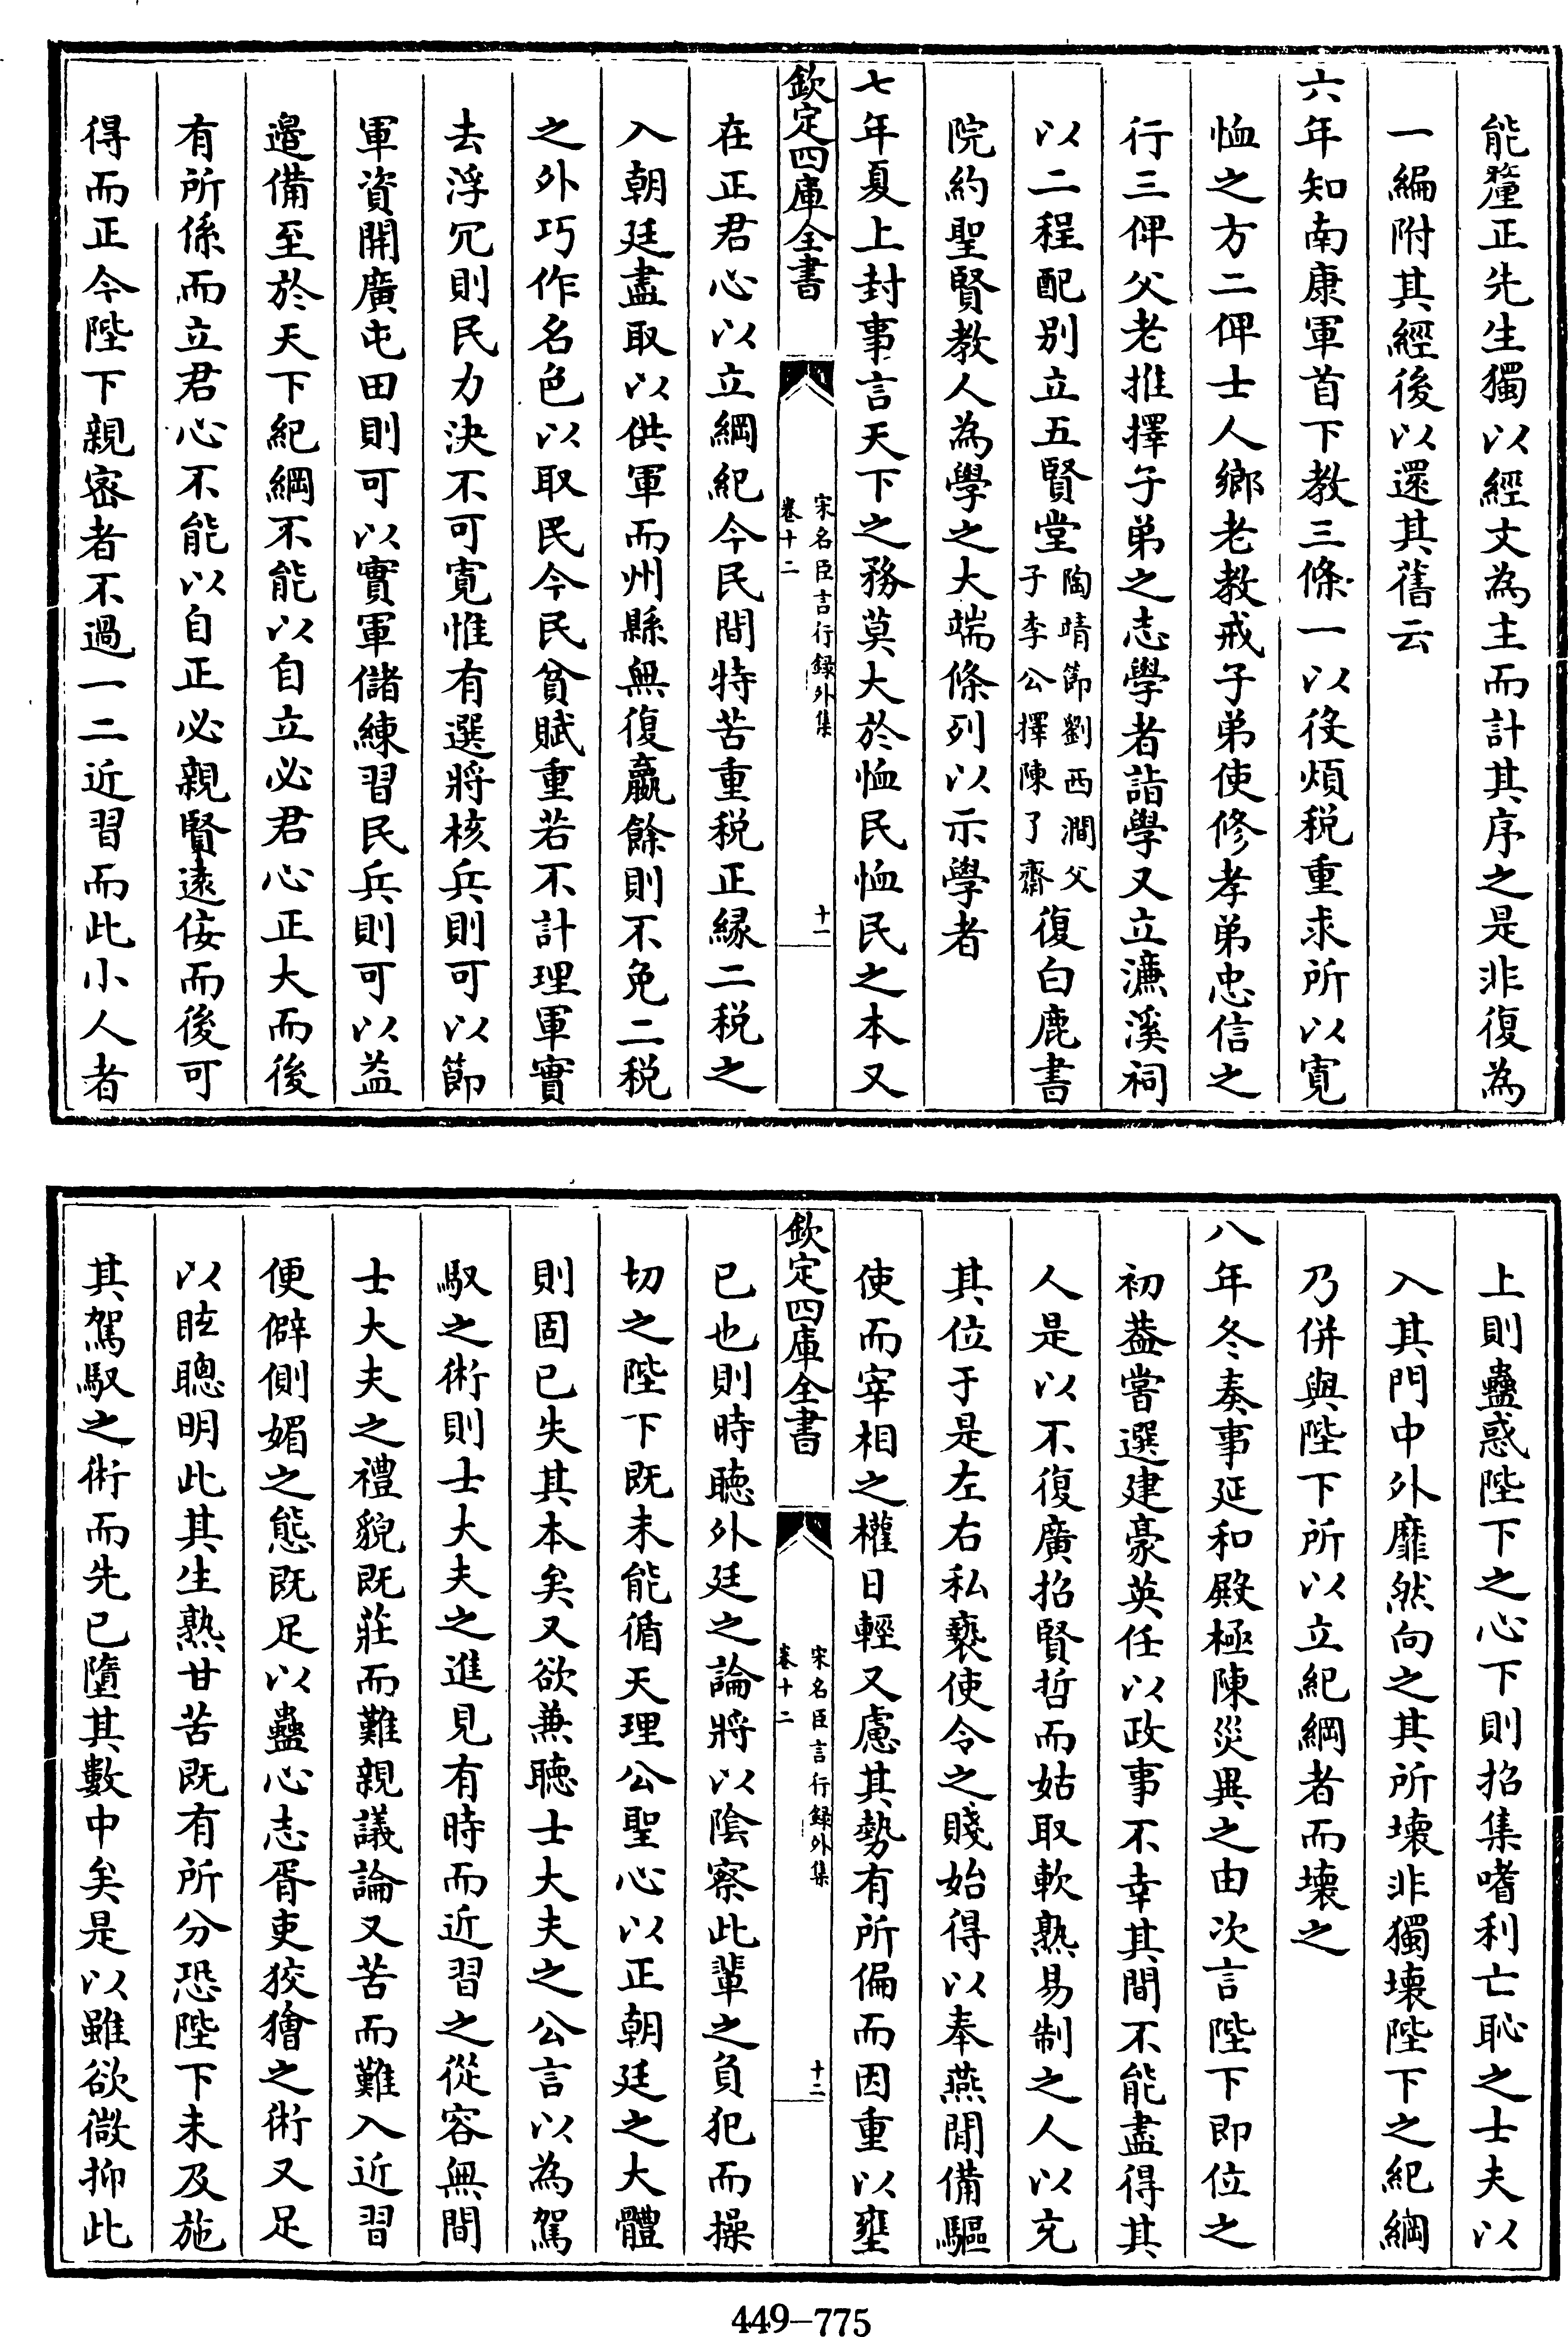 能釐正先生獨以經文為主而計其序之是非復為
一編附其經後以還其舊云
六年知南康軍首下教三條一以役煩税重求所以寛
恤之方二俾士人鄉老教戒子弟使修孝弟忠信之
行三俾父老推擇子弟之志學者詣學又立濂溪祠
以二程配别立五賢堂陶晴節劉西澗父子李公擇陳了齋復白鹿書
院約聖賢教人為學之大端條列以示學者
七年夏上封事言天下之務莫大於恤民恤民之本又
欽定四庫全書
宋名臣言行録外集
卷十二
十一
在正君心以立綱紀今民間特苦重税正縁二税之
入朝廷盡取以供軍而州縣無復贏餘則不免二税
之外巧作名色以取民今民貧賦重若不計理軍實
去浮冗則民力決不可寛惟有選將核兵則可以節
軍資開廣屯田則可以實軍儲練習民兵則可以益
邉備至於天下紀綱不能以自立必君心正大而後
有所係而立君心不能以自正必親賢遠佞而後可
得而正今陛下親密者不過一二近習而此小人者
上則蠱惑陛下之心下則招集嗜利亡恥之士夫以
入其門中外靡然向之其所壞非獨壞陛下之紀綱
乃併與陛下所以立紀綱者而壞之
八年冬奏事延和殿極陳災異之由次言陛下即位之
初葢嘗選建豪英任以政事不幸其間不能盡得其
人是以不復廣招賢哲而姑取軟熟易制之人以充
其位于是左右私䙝使令之賤始得以奉燕閒備驅
使而宰相之權日輕又慮其勢有所偏而因重以壅
欽定四庫全書
宋名臣言行録外集
卷十二
十二
已也則時聴外廷之論將以隂察此輩之負犯而操
切之陛下既未能循天理公聖心以正朝廷之大體
則固已失其本矣又欲兼聴士大夫之公言以為駕
馭之術則士大夫之進見有時而近習之從容無間
士大夫之禮貌既莊而難親議論又苦而難入近習
便僻側媚之態既足以蠱心志胥吏狡獪之術又足
以眩聰明此其生熟甘苦既有所分恐陛下未及施
其駕馭之術而先已墮其數中矣是以雖欲微抑此
449-775